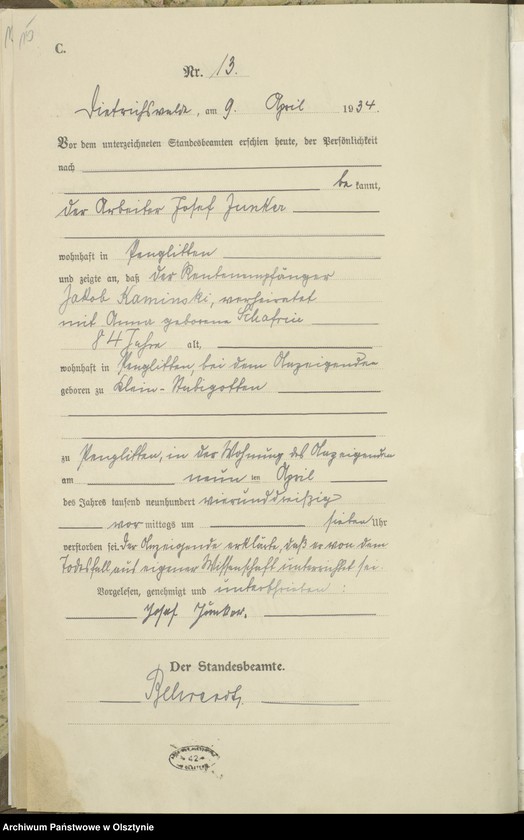 C.
Nr. 13.
Dietrichswalde, am 9. April 1934.
Vor dem unterzeichneten Standesbeamten erschien heute, der Persönlichkeit
nach
be kannt,
der Arbeiter Josef Junker
wohnhaft in Penglitten
und zeigte an, daß der Rentenempfänger
Jakob Kaminski, verheiratet
mit Anna geborene
84 Jahre alt,
wohnhaft in Penglitten, bei dem Anzeigenden
geboren zu Klein-
zu Penglitten, in der Wohnung des Anzeigenden
am neun ten April
des Jahres tausend neunhundert vierunddreißig
vor mittags um sieben Uhr
verstorben sei. Der Anzeigende erklärte, daß er von dem
Todesfall aus eigener Wissenschaft unterrichtet sei.
Vorgelesen, genehmigt und unterschrieben:
Josef Junker.
Der Standesbeamte.
42
Archiwum Państwowe w Olsztynie